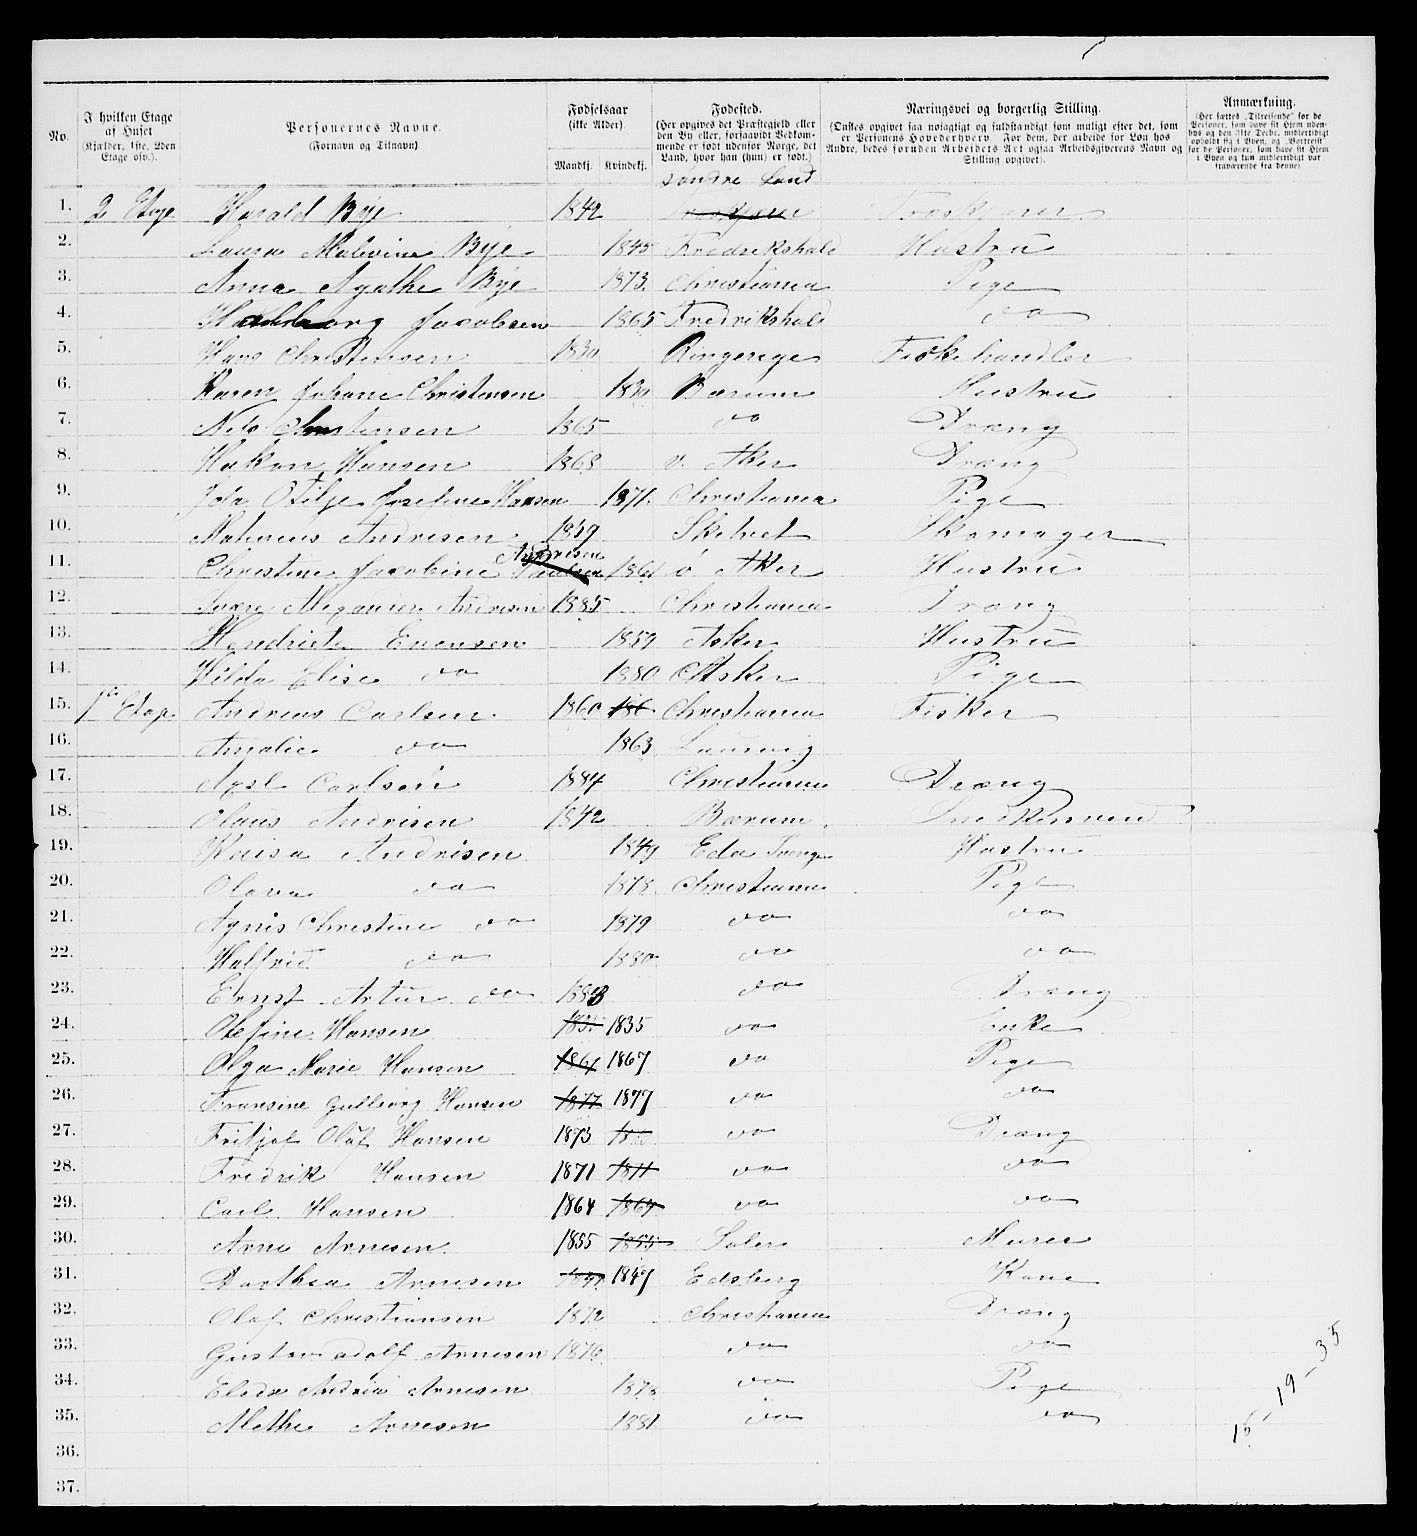 No.
I hvilken Etage af Huset (Kjælder, 1ste, 2den Etage osv.).
Personernes Navne. (Fornavn og Tilnavn)
Fødselsaar (ikke Alder). Mandkj. Kvindekj.
Fødested. (Her opgives det Præstegjeld eller den By eller, forsaavidt Vedkommende er født udenfor Norge, det Land, hvor han (hun) er født.)
Næringsvei og borgerlig Stilling. (Ønskes opgivet saa nøiagtigt og fuldstændigt som muligt efter det, som er Personens Hovederhverv. For dem, der arbeide for Løn hos Andre, bedes foruden Arbeidets Art ogsaa Arbeidsgiverens Navn og Stilling opgivet).
Anmærkning. (Her sættes „Tilreisende“ for de Personer, som have sit Hjem udenbys og den 31te Decbr. midlertidigt opholdt sig i Byen, og „Bortreist“ for de Personer, som have sit Hjem i Byen og kun midlertidigt var fraværende fra denne)
søndre Land
1. 2 Etage Harald Bye 1842 Træskjærer
2. Laura Malvine Bye 1845 Fredrikshald Hustru
3. Anna Agathe Bye 1873 Christiania Pige
4. Jacobsen 1865 Fredrikshald do
5. Hans Christensen 1830 Ringerige Fiskehandler
6. Karen Johane Christensen 1830 Bærum Hustru
7. Nils Christensen 1865 do Dræng
8. Hakon Hansen 1868 v. Aker Dræng
9. Josefine Hansen 1871 Christiania Pige
10. Andresen 1859 Skomager
11. Christine Jacobine Andresen 1861 ø Aker Hustru
12. Andresen 1885 Christiania Dræng
13. Evensen 1859 Asker Hustru
14. Hilda Elise do 1880 Asker Pige
15. 1ste Etage Andreas Carlsen 1860 186 Christiania Fisker
16. Amalie do 1863 Laurvig
17. Axel Carlsen 1884 Christiania Dræng
18. Olaus Andrisen 1842 Bærum Snedkersvend
19. Kaisa Andrisen 1849 Eda Hustru
20. do 1878 Christiania Pige
21. Agnis Christine do 1879 do do
22. Halfrid do 1880 do do
23. Ernst Artur do 1883 do Dræng
24. Olefine Hansen 1835 1835 do Enke
25. Olga Marie Hansen 1867 1867 do Pige
26. Fransine Gulborg Hansen 1877 1877 do do
27. Fritjof Oluf Hansen 1873 do Dræng
28. Fredrik Hansen 1871 1871 do do
29. Carl Hansen 1864 1864 do do
30. Arne Arnesen 1855 1855 Soler Murer
31. Dorthea Arnesen 1847 1847 Edsberg Kone
32. Olaf Christiansen 1872 Christiania Dræng
33. Gustav adolf Arnesen 1876 do do
34. Arnesen 1878 do Pige
35. Mathe Arnesen 1881 do do
36.
37.
15 – 19 – 35